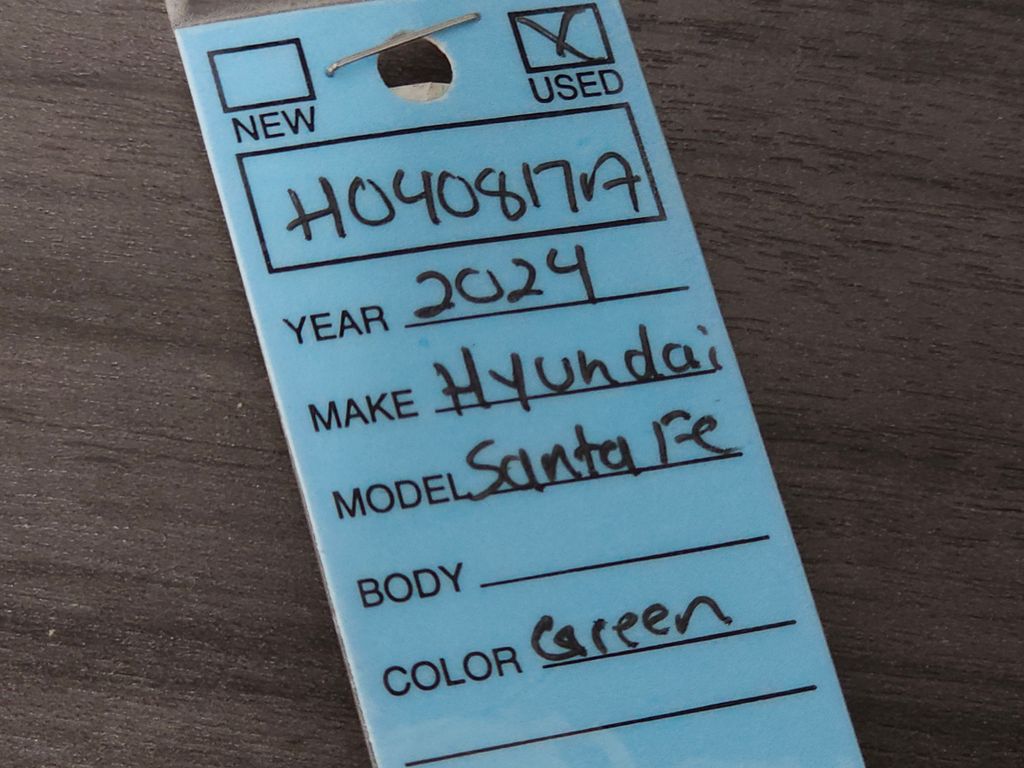 NEW USED
H040817A
YEAR 2024
MAKE Hyundai
MODEL Santa Fe
BODY
COLOR Green